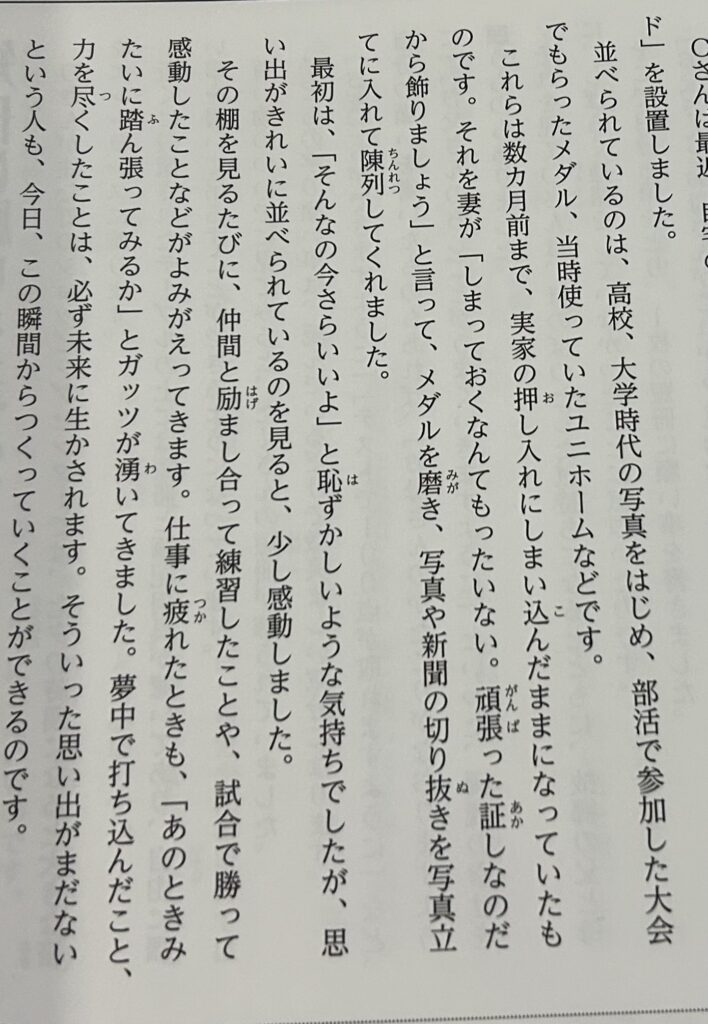 Oさんは最近、自宅の
ド」を設置しました。
並べられているのは、高校、大学時代の写真をはじめ、部活で参加した大会
でもらったメダル、当時使っていたユニホームなどです。
これらは数カ月前まで、実家の押し入れにしまい込んだままになっていたも
のです。それを妻が「しまっておくなんてもったいない。頑張った証しなのだ
から飾りましょう」と言って、メダルを磨き、写真や新聞の切り抜きを写真立
てに入れて陳列してくれました。
最初は、「そんなの今さらいいよ」と恥ずかしいような気持ちでしたが、思
い出がきれいに並べられているのを見ると、少し感動しました。
その棚を見るたびに、仲間と励まし合って練習したことや、試合で勝って
感動したことなどがよみがえってきます。仕事に疲れたときも、「あのときみ
たいに踏ん張ってみるか」とガッツが湧いてきました。夢中で打ち込んだこと、
力を尽くしたことは、必ず未来に生かされます。そういった思い出がまだない
という人も、今日、この瞬間からつくっていくことができるのです。